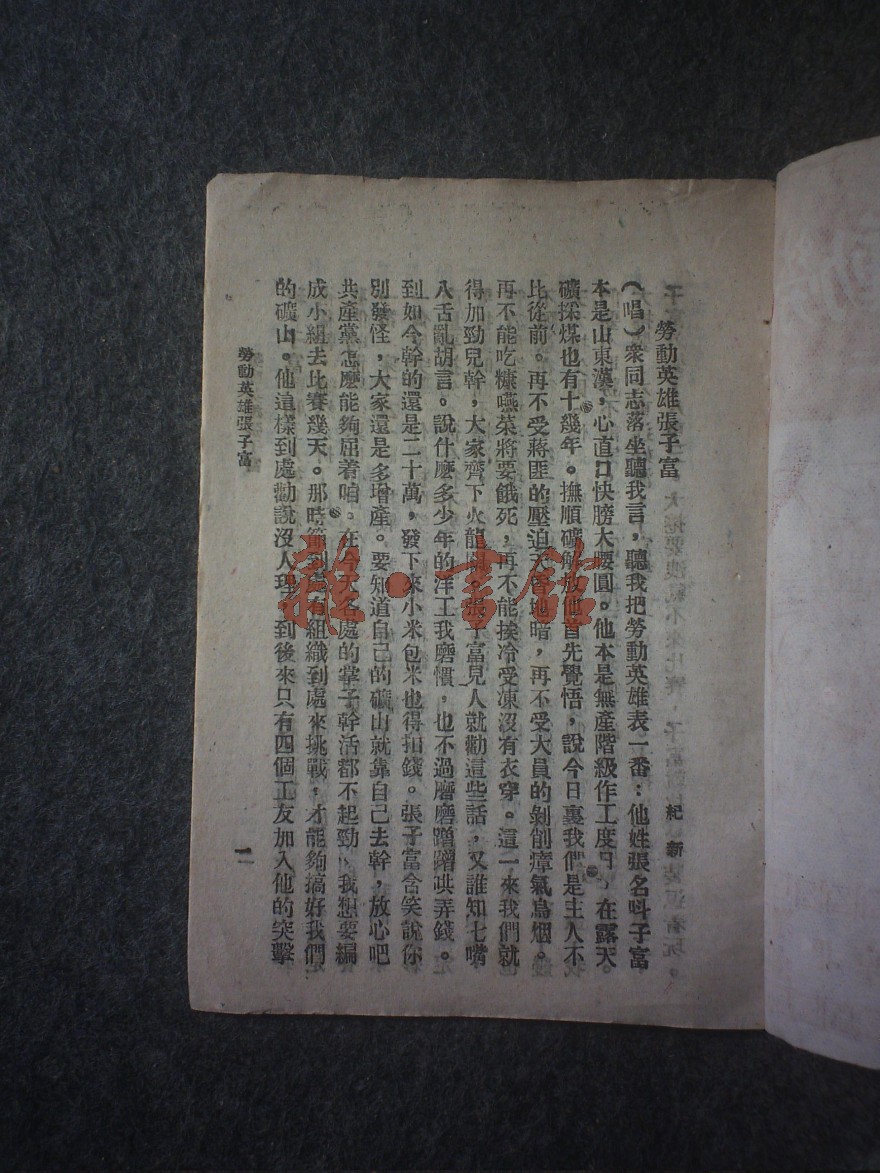 勞動英雄張子富
紀新
(唱)衆同志落坐聽我言，聽我把勞動英雄表一番：他姓張名呌子富
本是山東漢，心直口快膀大腰圓。他本是無產階級作工度日，在露天
礦採煤也有十幾年。撫順礦解放他首先覺悟，說今日裏我們是主人不
比從前。再不受蔣匪的壓迫天昏地暗，再不受大員的剝削瘴氣烏烟。
再不能吃糠嚥菜將要餓死，再不能挨冷受凍沒有衣穿。這一來我們就
得加勁兒幹，大家齊下火龍關。張子富見人就勸這些話，又誰知七嘴
八舌亂胡言。說什麽多少年的洋工我磨慣，也不過磨磨蹭蹭哄弄錢。
到如今幹的還是二十萬，發下來小米包米也得扣錢。張子富含笑說你
別發怪，大家還是多增產。要知道自己的礦山就靠自己去幹，放心吧
共產黨怎麼能夠屈着咱。在今天各處的掌子幹活都不起勁、我想要編
成小組去比賽幾天。那時節到處有組織到處來挑戰，才能夠搞好我們
的礦山。他這樣到處勸說沒人理，到後來只有四個工友加入他的突擊
勞動英雄張子富
一
雜·書館